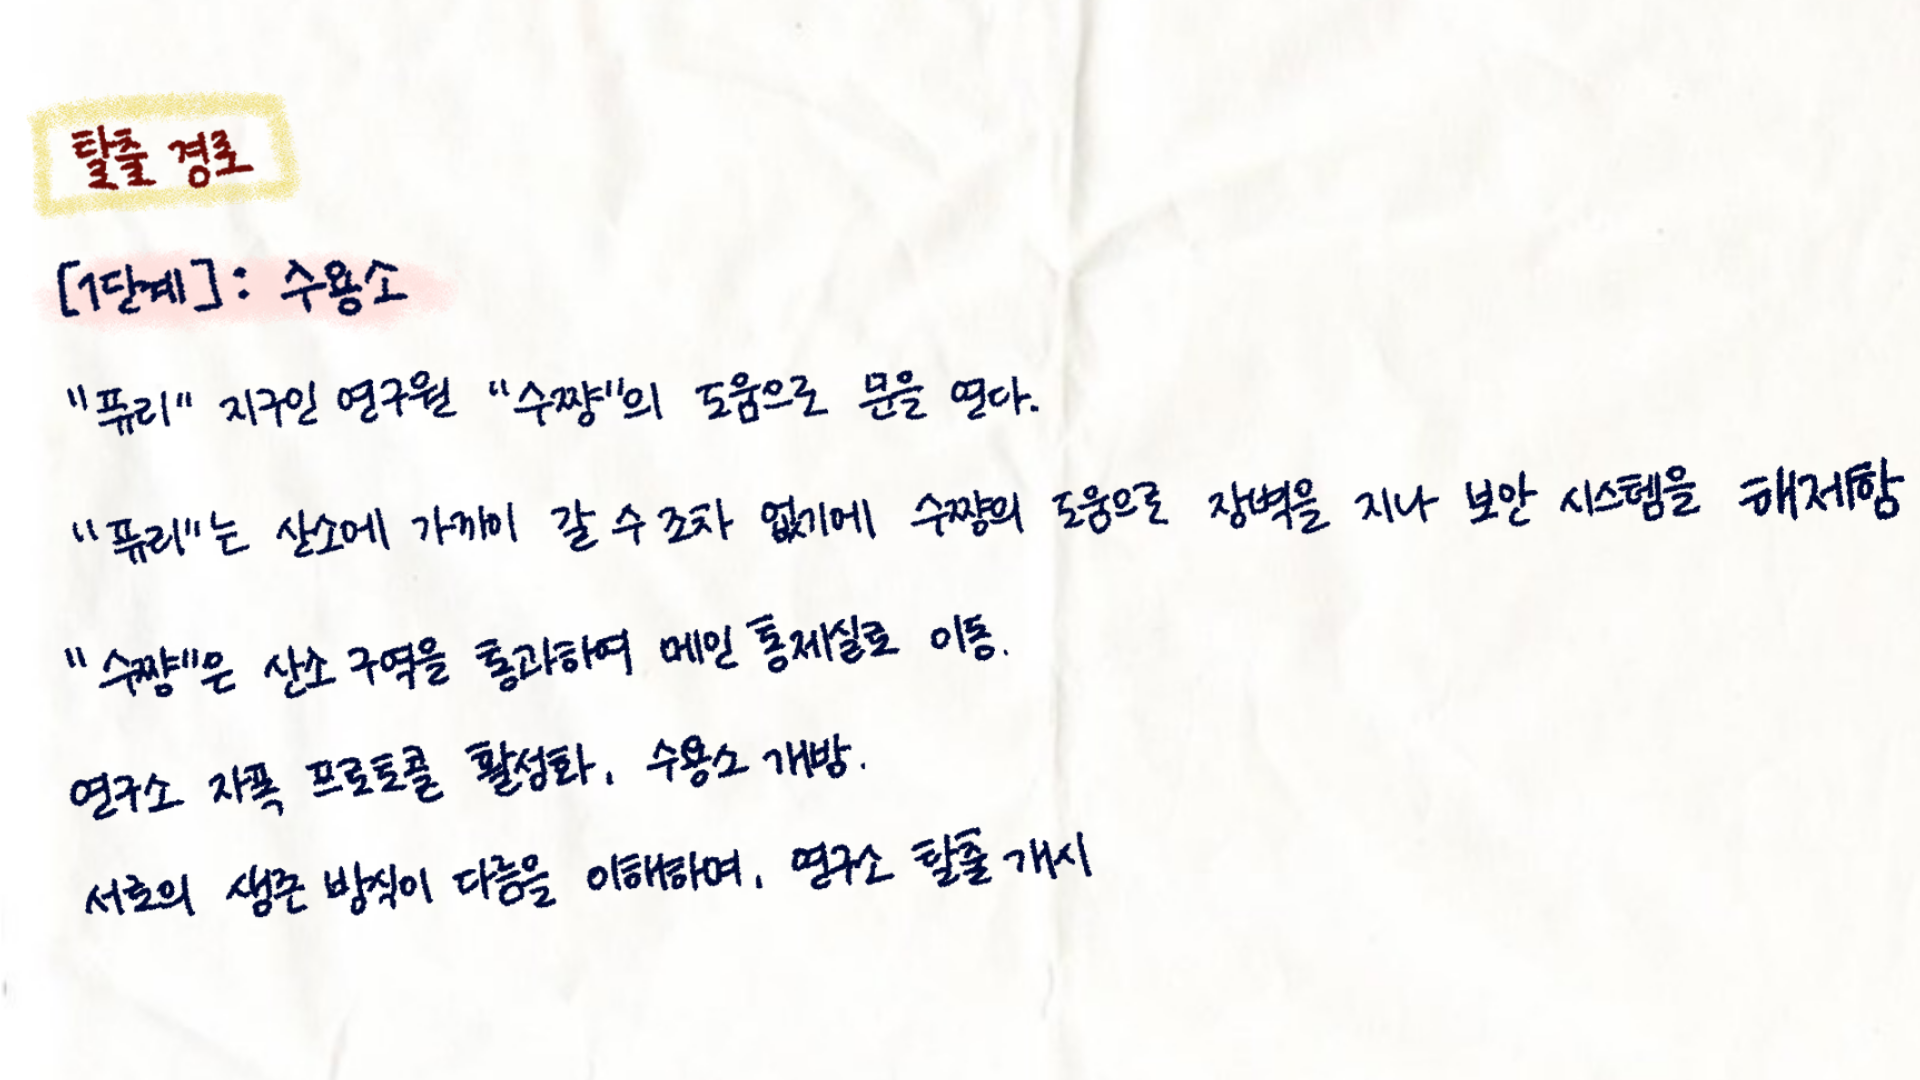 탈출 경로
[1단계]: 수용소
"퓨리" 지구인 연구원 "수쨩"의 도움으로 문을 연다.
"퓨리"는 산소에 가까이 갈 수 조차 없기에 수쨩의 도움으로 장벽을 지나 보안 시스템을 해제함
"수쨩"은 산소 구역을 통과하여 메인 통제실로 이동.
연구소 자폭 프로토콜 활성화, 수용소 개방.
서로의 생존 방식이 다름을 이해하며, 연구소 탈출 개시